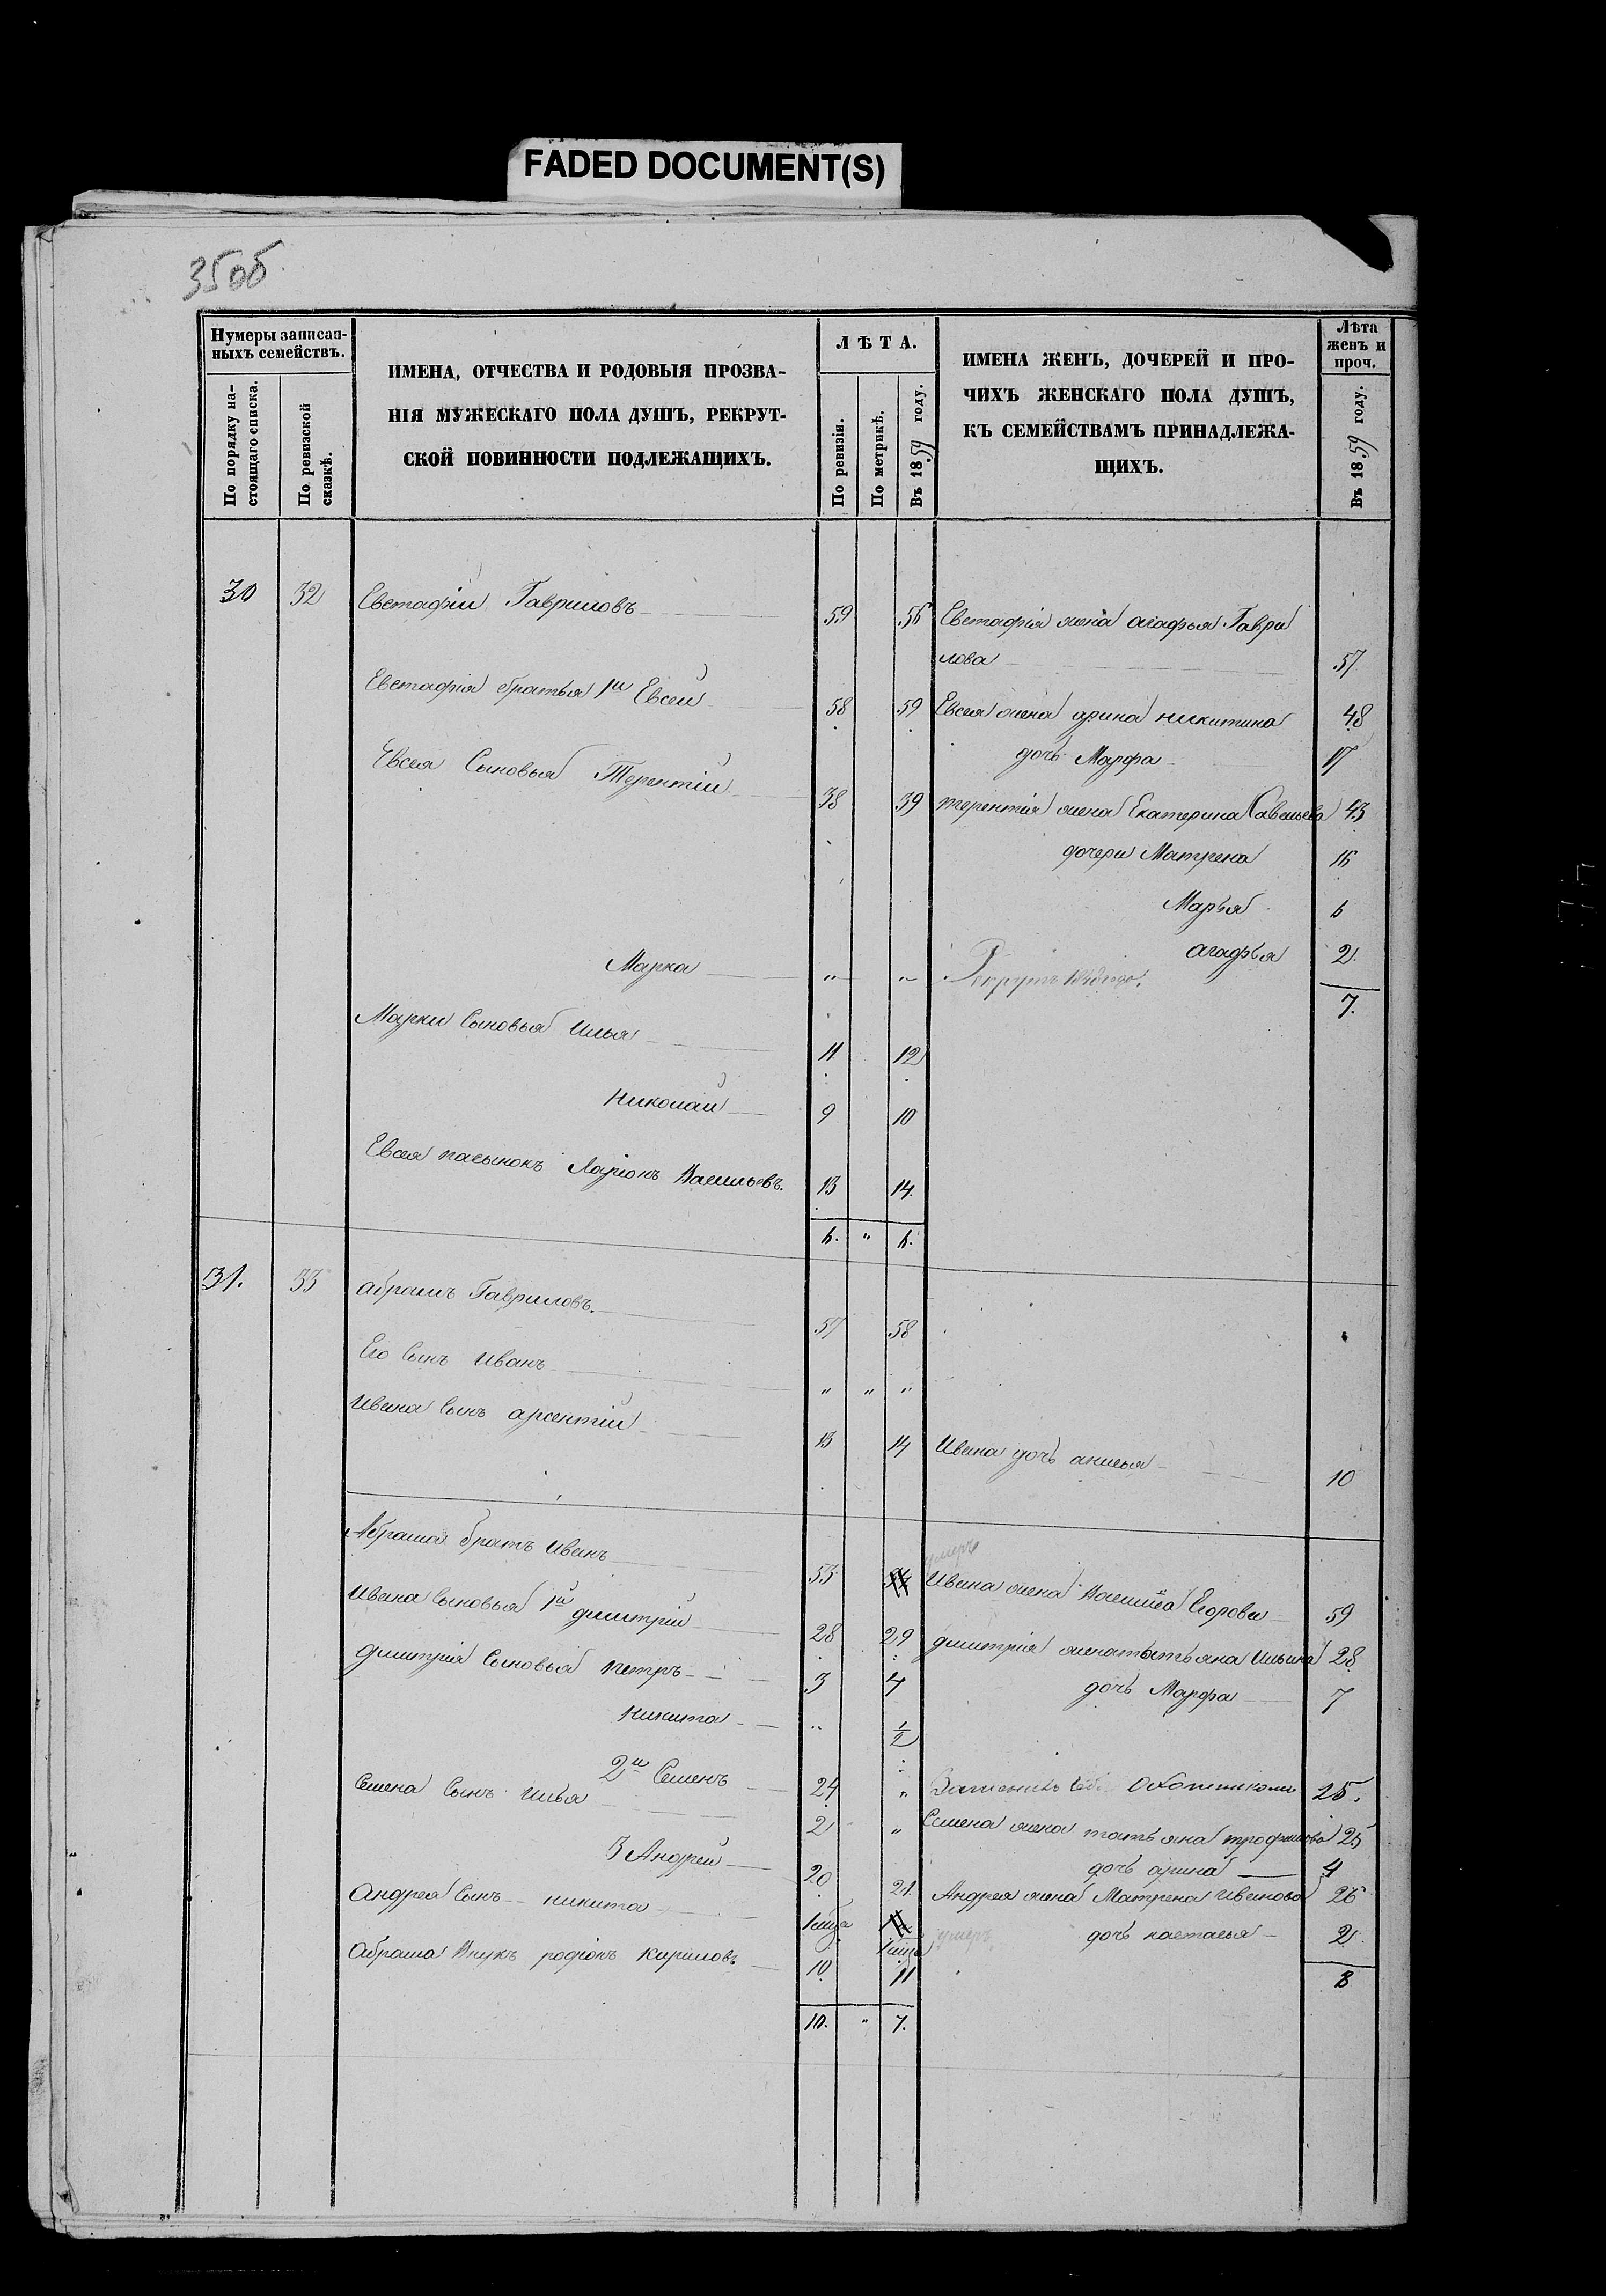 FADED DOCUMENT(S)
35об
Нумеры записан-
ныхъ семействъ.
По порядку на-
стоящаго списка.
По ревизской
сказкѣ.
ИМЕНА, ОТЧЕСТВА И РОДОВЫЯ ПРОЗВА-
НІЯ МУЖЕСКАГО ПОЛА ДУШЪ, РЕКРУТ-
СКОЙ ПОВИННОСТИ ПОДЛЕЖАЩИХЪ.
ЛѢТА.
По ревизіи.
По метрикѣ.
Въ 1859 году.
ИМЕНА ЖЕНЪ, ДОЧЕРЕЙ И ПРО-
ЧИХЪ ЖЕНСКАГО ПОЛА ДУШЪ,
КЪ СЕМЕЙСТВАМЪ ПРИНАДЛЕЖА-
ЩИХЪ.
Лѣта
женъ и
проч.
Въ 1859 году.
30 32 Евстафій Гавриловъ 59 Евстафія жена агафья Гаври
лова 57
Евстафія братья 1й Евсей 58 59 Евсея жена арина никитина 48
дочь Марфа 17
Евсея Сыновья Терентій 38 39 терентія жена Екатерина Савельева 43
дочери Матрена 16
Марья 6
агафья 2
Марка " " Рекрутъ
7.
Марки Сыновья илья 11 12
николай 9 10
Евсея пасынокъ Ларіонъ Васильевъ. 13 14
6. " 6.
31. 33 абрамъ Гавриловъ. 57 58
Его сынъ иванъ " " "
ивана сынъ арсентій 13 14 Ивана дочь анисья 10
Абрама братъ иванъ 53 умеръ Ивана жена Василиса Егорова 59
ивана сыновья 1й димитрій 28 29 димитрія жена татьяна ильина 28
димитрія сыновья петръ 3 4 дочь Марфа 7
никита " 1/2
2й Семенъ 24 " Охотникомъ 25.
Семена сынъ илья 2 " Семена жена татьяна трофимова 25
3 Андрей 20 21. дочь арина 4
Андрея жена Матрена иванова 26
андрея сынъ никита умеръ дочь настасья 2
абрама внукъ родіонъ кириловъ 10 11
8
10. " 7.